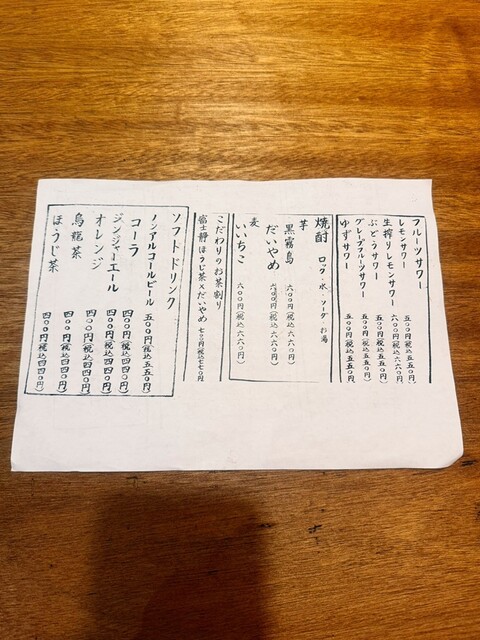 フルーツサワー
レモンサワー 五〇〇円(税込五五〇円)
生搾りレモンサワー 六〇〇円(税込六六〇円)
ぶどうサワー 五〇〇円(税込五五〇円)
グレープフルーツサワー 五〇〇円(税込五五〇円)
ゆずサワー 五〇〇円(税込五五〇円)
焼酎 ロック 水 ソーダ お湯
芋
黒霧島 六〇〇円(税込六六〇円)
だいやめ 六〇〇円(税込六六〇円)
麦
いいちこ 六〇〇円(税込六六〇円)
こだわりのお茶割り
富士静ほうじ茶×だいやめ 七〇〇円(税込七七〇円)
ソフトドリンク
ノンアルコールビール 五〇〇円(税込五五〇円)
コーラ 四〇〇円(税込四四〇円)
ジンジャーエール 四〇〇円(税込四四〇円)
オレンジ 四〇〇円(税込四四〇円)
烏龍茶 四〇〇円(税込四四〇円)
ほうじ茶 四〇〇円(税込四四〇円)